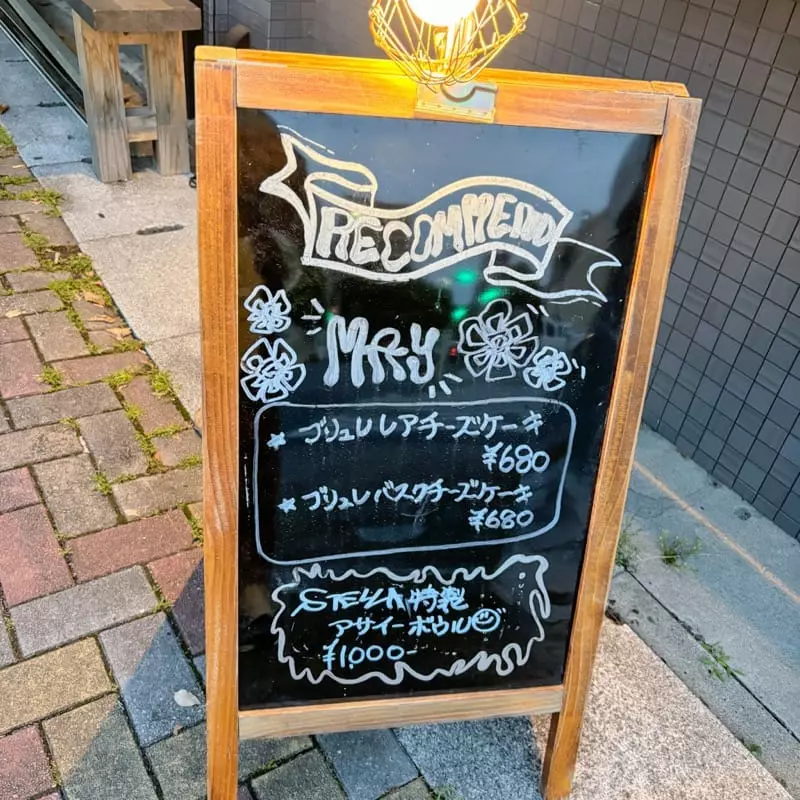 RECOMMEND
MAY
★ ブリュレレアチーズケーキ
¥680
★ ブリュレバスクチーズケーキ
¥680
STELLA特製
アサイーボウル
¥1,000-